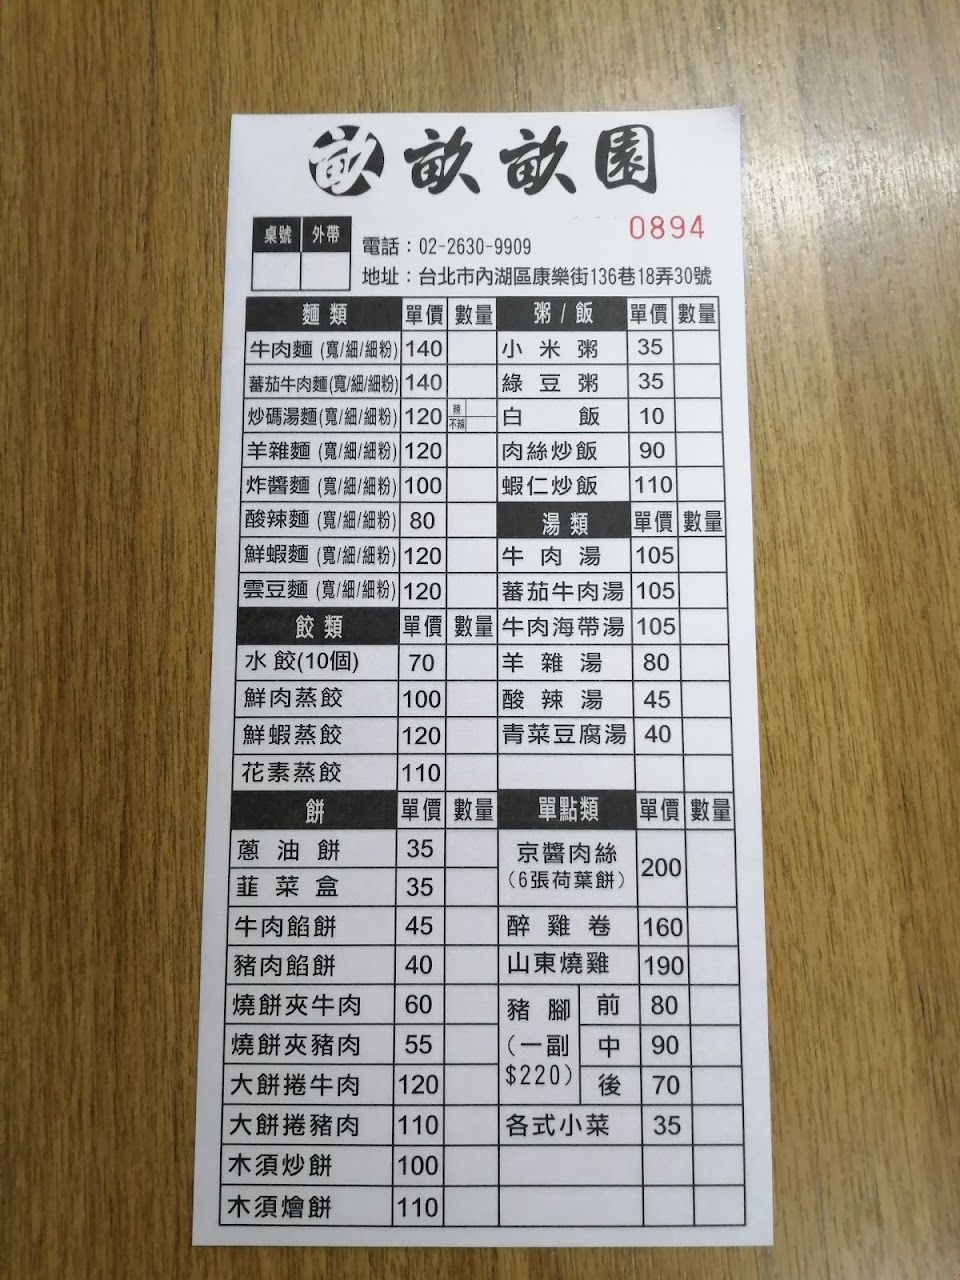 畝 畝畝園
0894
桌號 外帶
電話：02-2630-9909
地址：台北市內湖區康樂街136巷18弄30號
麵類 單價 數量
牛肉麵 (寬/細/細粉) 140
蕃茄牛肉麵(寬/細/細粉) 140
炒碼湯麵(寬/細/細粉) 120 辣 不辣
羊雜麵 (寬/細/細粉) 120
炸醬麵 (寬/細/細粉) 100
酸辣麵 (寬/細/細粉) 80
鮮蝦麵 (寬/細/細粉) 120
雲豆麵 (寬/細/細粉) 120
餃類 單價 數量
水餃(10個) 70
鮮肉蒸餃 100
鮮蝦蒸餃 120
花素蒸餃 110
餅 單價 數量
蔥油餅 35
韮菜盒 35
牛肉餡餅 45
豬肉餡餅 40
燒餅夾牛肉 60
燒餅夾豬肉 55
大餅捲牛肉 120
大餅捲豬肉 110
木須炒餅 100
木須燴餅 110
粥/飯 單價 數量
小米粥 35
綠豆粥 35
白飯 10
肉絲炒飯 90
蝦仁炒飯 110
湯類 單價 數量
牛肉湯 105
蕃茄牛肉湯 105
牛肉海帶湯 105
羊雜湯 80
酸辣湯 45
青菜豆腐湯 40
單點類 單價 數量
京醬肉絲 200
(6張荷葉餅)
醉雞卷 160
山東燒雞 190
豬腳 前 80
(一副 中 90
$220) 後 70
各式小菜 35